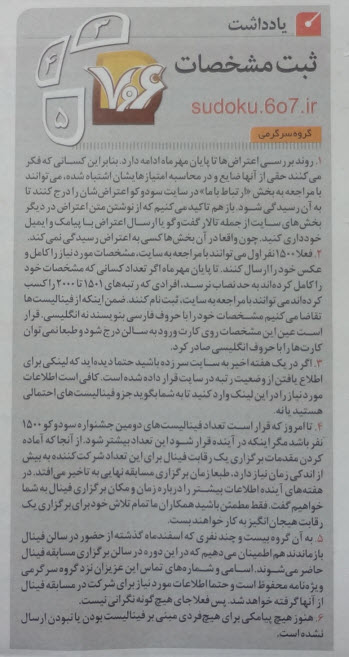 یادداشت
ثبت مشخصات
۳
۴
۵
۷۰۶
sudoku.6o7.ir
گروه سرگرمی
۱. روند بررسی اعتراض‌ها تا پایان مهرماه ادامه دارد. بنابراین کسانی که فکر
می کنند حقی از آنها ضایع و در محاسبه امتیازهایشان اشتباه شده، می‌توانند
با مراجعه به بخش «ارتباط با ما» در سایت سودوکو اعتراض‌شان را درج کنند تا
به آن رسیدگی شود. باز هم تاکید می‌کنیم که از نوشتن متن اعتراض در دیگر
بخش‌های سایت از جمله تالار گفت‌وگو یا ارسال اعتراض با پیامک و ایمیل
خودداری کنید. چون واقعا در آن بخش‌ها کسی به اعتراض رسیدگی نمی کند.
۲. فعلا ۱۵۰۰ نفر اول می‌توانند با مراجعه به سایت، مشخصات مورد نیاز را کامل و
عکس خود را ارسال کنند. تا پایان مهرماه اگر تعداد کسانی که مشخصات خود
را کامل کرده‌اند به حد نصاب نرسد، افرادی که رتبه‌های ۱۵۰۱ تا ۲۰۰۰ را کسب
کرده‌اند می‌توانند با مراجعه به سایت، ثبت نام کنند. ضمن اینکه از فینالیست‌ها
تقاضا می کنیم مشخصات خود را با حروف فارسی بنویسند نه انگلیسی. قرار
است عین این مشخصات روی کارت ورود به سالن درج شود و طبعا نمی توان
کارت‌ها را با حروف انگلیسی صادر کرد.
۳. اگر در یک هفته اخیر به سایت سر زده باشید حتما دیده‌اید که لینکی برای
اطلاع یافتن از وضعیت رتبه در سایت قرار داده شده است. کافی است اطلاعات
مورد نیاز را در این لینک وارد کنید تا به شما بگوید جزو فینالیست‌های احتمالی
هستید یا نه.
۴. تا امروز که قرار است تعداد فینالیست‌های دومین جشنواره سودوکو ۱۵۰۰
نفر باشد مگر اینکه در آینده قرار شود این تعداد بیشتر شود. از آنجا که آماده
کردن مقدمات برگزاری یک رقابت فینال برای این تعداد شرکت کننده به بیش
از اندکی زمان نیاز دارد، طبعا زمان برگزاری مسابقه نهایی به تاخیر می‌افتد. در
هفته‌های آینده اطلاعات بیشتر را درباره زمان و مکان برگزاری فینال به شما
خواهیم گفت. فقط مطمئن باشید همکاران ما تمام تلاش خود برای برگزاری یک
رقابت هیجان‌انگیز به کار خواهند بست.
۵. به آن گروه بیست و چند نفری که اسفندماه گذشته از حضور در سالن فینال
باز ماندند هم اطمینان می‌دهیم که در این دوره در سالن برگزاری مسابقه فینال
حاضر می‌شوند. اسامی و شماره‌های تماس این عزیزان نزد گروه سرگرمی
ویژه‌نامه محفوظ است و حتما اطلاعات مورد نیاز برای شرکت در مسابقه فینال
از آنها گرفته خواهد شد. پس فعلا جای هیچ گونه نگرانی نیست.
۶. هنوز هیچ پیامکی برای هیچ فردی مبنی بر فینالیست بودن یا نبودن ارسال
نشده است.